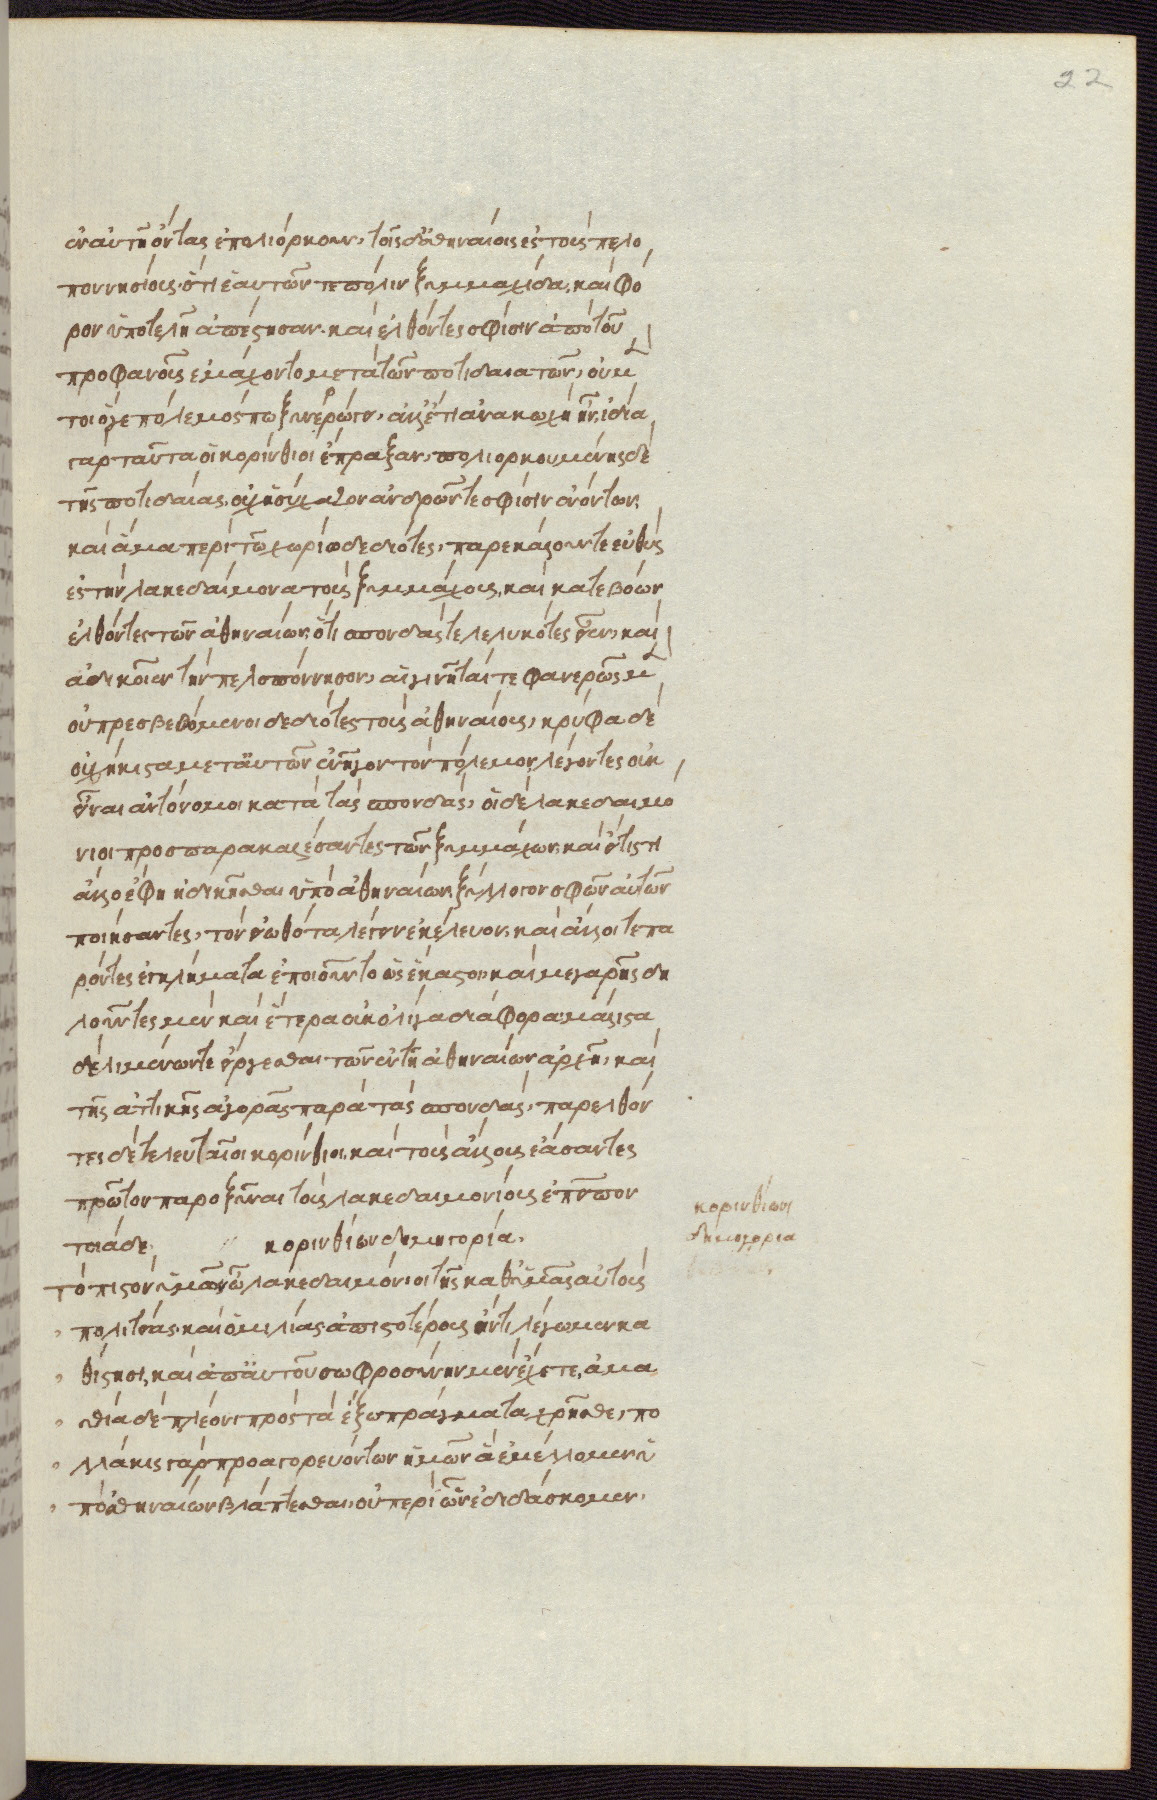 22
ἐν αὐτῆ ὄντας ἐπολιόρκουν· τοῖς δ' ἀθηναίοις ἐς τοὺς πελο
ποννησίους· ὅτι ἑαυτῶν τε πόλιν ξυμμαχίδα, καὶ φό
ρον ὑποτελῆ ἀπέστησαν· καὶ ἐλθόντες σφίσιν ἀπὸ τοῦ
προφανοῦς ἐμάχοντο μετὰ τῶν ποτιδαιατῶν, οὐ μέν
τοι ὅγε πόλεμός πω ξυνερρώγει, ἀλλ' ἔτι ἀνακωχὴ ἦν. ἰδία
γὰρ ταῦτα οἱ κορίνθιοι ἔπραξαν, πολιορκουμένης δὲ
τῆς ποτιδαίας, οὐχ ἡσύχαζον ἀνδρῶν τε σφίσιν ἐνόντων,
καὶ ἅμα περὶ τῶ χωρίω δεδιότες, παρεκάλουν τε εὐθὺς
ἐς τὴν λακεδαίμονα τοὺς ξυμμάχους, καὶ κατεβόων
ἐλθόντες τῶν ἀθηναίων, ὅτι σπονδάς τε λελυκότες εἶεν, καὶ
ἀδικοῖεν τὴν πελοπόννησον, αἰγινῆταί τε φανερῶς μὲν
οὐ πρεσβευόμενοι δεδιότες τοὺς ἀθηναίους, κρύφα δὲ
οὐχ ἥκιστα μετ' αὐτῶν ἐνῆγον τὸν πόλεμον, λέγοντες οὐκ
εἶναι αὐτόνομοι κατὰ τὰς σπονδάς, οἱ δὲ λακεδαιμό
νιοι προσπαρακαλέσαντες τῶν ξυμμάχων, καὶ εἴ τίς τι
ἄλλο ἔφη ἠδικῆσθαι ὑπὸ ἀθηναίων, ξύλλογον σφῶν αὐτῶν
ποιήσαντες, τὸν εἰωθότα λέγειν ἐκέλευον, καὶ ἄλλοι τε πα
ρόντες ἐγκλήματα ἐποιοῦντο ὡς ἕκαστοι, καὶ μεγαρῆς δη
λοῦντες μὲν καὶ ἕτερα οὐκ ὀλίγα διάφορα, μάλιστα
δὲ λιμένων τε εἴργεσθαι τῶν ἐν τῆ ἀθηναίων ἀρχῆ, καὶ
τῆς ἀττικῆς ἀγορᾶς παρὰ τὰς σπονδάς, παρελθόν
τες δὲ τελευταῖοι κορίνθιοι, καὶ τοὺς ἄλλους ἐάσαντες
πρῶτον παροξῦναι τοὺς λακεδαιμονίους ἐπεῖπον
τοιάδε. κορινθίων δημηγορία.
κορινθίων
δημηγορία
τὸ πιστὸν ὑμᾶς ὦ λακεδαιμόνιοι τῆς καθ' ὑμᾶς αὐτοὺς
πολιτείας, καὶ ὁμιλίας, ἀπιστοτέρους ἤν τι λέγωμεν κα
θίστησι, καὶ ἀπ' αὐτοῦ σωφροσύνην μὲν ἔχετε, ἀμα
θία δὲ πλέονι πρὸς τὰ ἔξω πράγματα χρῆσθε, πο
λλάκις γὰρ προαγορευόντων ἡμῶν ἃ ἐμέλλομεν ὑ
πὸ ἀθηναίων βλάπτεσθαι, οὐ περὶ ὧν ἐδιδάσκομεν,